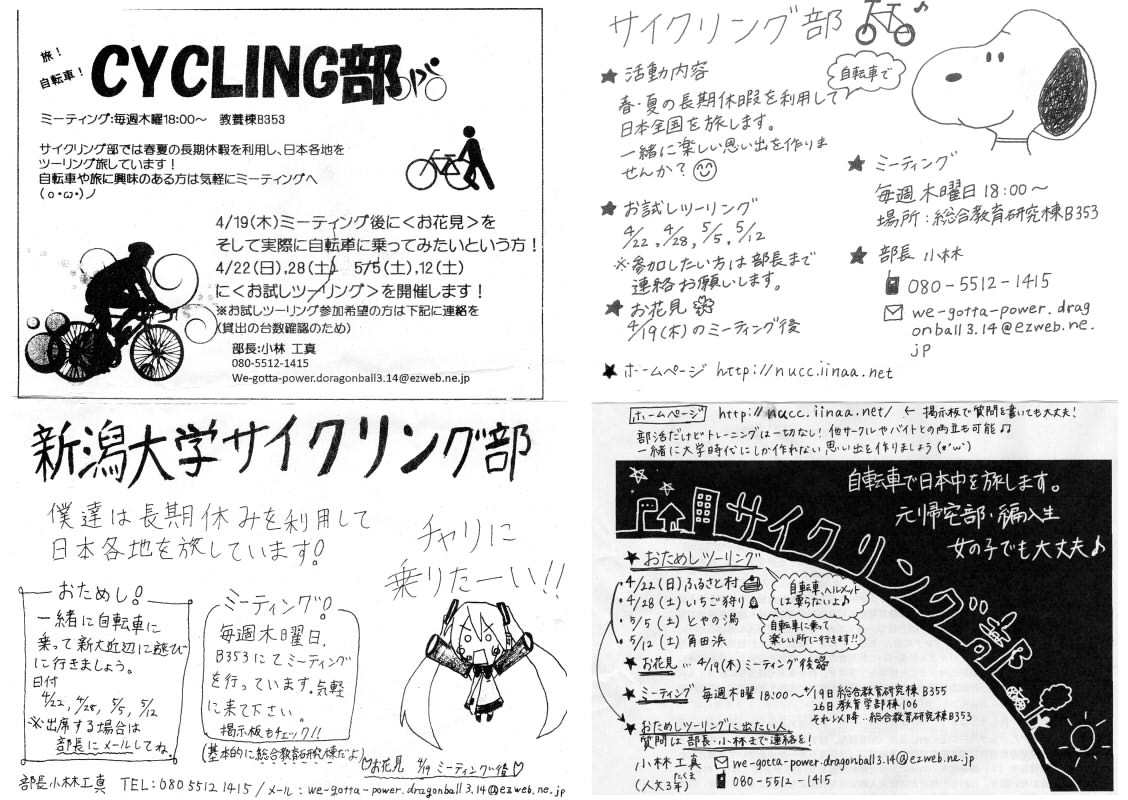 旅!
自転車!
CYCLING部
ミーティング:毎週木曜18:00～ 教養棟B353
サイクリング部では春夏の長期休暇を利用し、日本各地を
ツーリング旅しています!
自転車や旅に興味のある方は気軽にミーティングへ
(o・ω・)ノ
4/19(木)ミーティング後に<お花見>を
そして実際に自転車に乗ってみたいという方!
4/22(日),28(土) 5/5(土),12(土)
に<お試しツーリング>を開催します!
※お試しツーリング参加希望の方は下記に連絡を
(貸出の台数確認のため)
部長:小林 工真
080-5512-1415
We-gotta-power.doragonball3.14@ezweb.ne.jp
サイクリング部
★活動内容
自転車で
春・夏の長期休暇を利用して
日本全国を旅します。
一緒に楽しい思い出を作りま
せんか?
★お試しツーリング
4/22,4/28,5/5,5/12
※参加したい方は部長まで
連絡お願いします。
★お花見
4/19(木)のミーティング後
★ミーティング
毎週木曜日18:00～
場所:総合教育研究棟B353
★部長 小林
080-5512-1415
we-gotta-power.drag
onball3.14@ezweb.ne.
jp
★ホームページ http://nucc.iinaa.net
新潟大学サイクリング部
僕達は長期休みを利用して
日本各地を旅しています!
チャリに
乗りたーい!!
おためし!
一緒に自転車に
乗って新大近辺に遊びに
に行きましょう。
日付
4/22,4/28,5/5,5/12
※出席する場合は
部長にメールしてね。
ミーティング!
毎週木曜日、
B353にてミーティング
を行っています。気軽
に来て下さい。
掲示板もチェック!!
(基本的に総合教育研究棟だよ)
♡お花見 4/19 ミーティング後♡
部長小林工真 TEL:080 5512 1415/メール:we-gotta-power.dragonball3.14@ezweb.ne.jp
ホームページ http://nucc.iinaa.net/ ← 掲示板で質問を書いても大丈夫!
部活だけどトレーニングは一切なし!他サークルやバイトとの両立も可能♫
一緒に大学時代にしか作れない思い出を作りましょう(*'ω')
自転車で日本中を旅します。
元帰宅部・編入生
女の子でも大丈夫♪
サイクリング部
★おためしツーリング
・4/22(日)ふるさと村
・4/28(土)いちご狩り
・5/5(土)とやの潟
・5/12(土)角田浜
自転車、ヘルメット
は要らないよ♪
自転車に乗って
楽しい所に行きます!!
★お花見…4/19(木)ミーティング後
★ミーティング 毎週木曜18:00～4/19日総合教育研究棟B355
26日教育学部棟106
それ以降‥総合教育研究棟B353
★おためしツーリングに出たい人、
質問は部長・小林まで連絡を!
小林工真 we-gotta-power.dragonball3.14@ezweb.ne.jp
たくま
(人文3年) 080-5512-1415